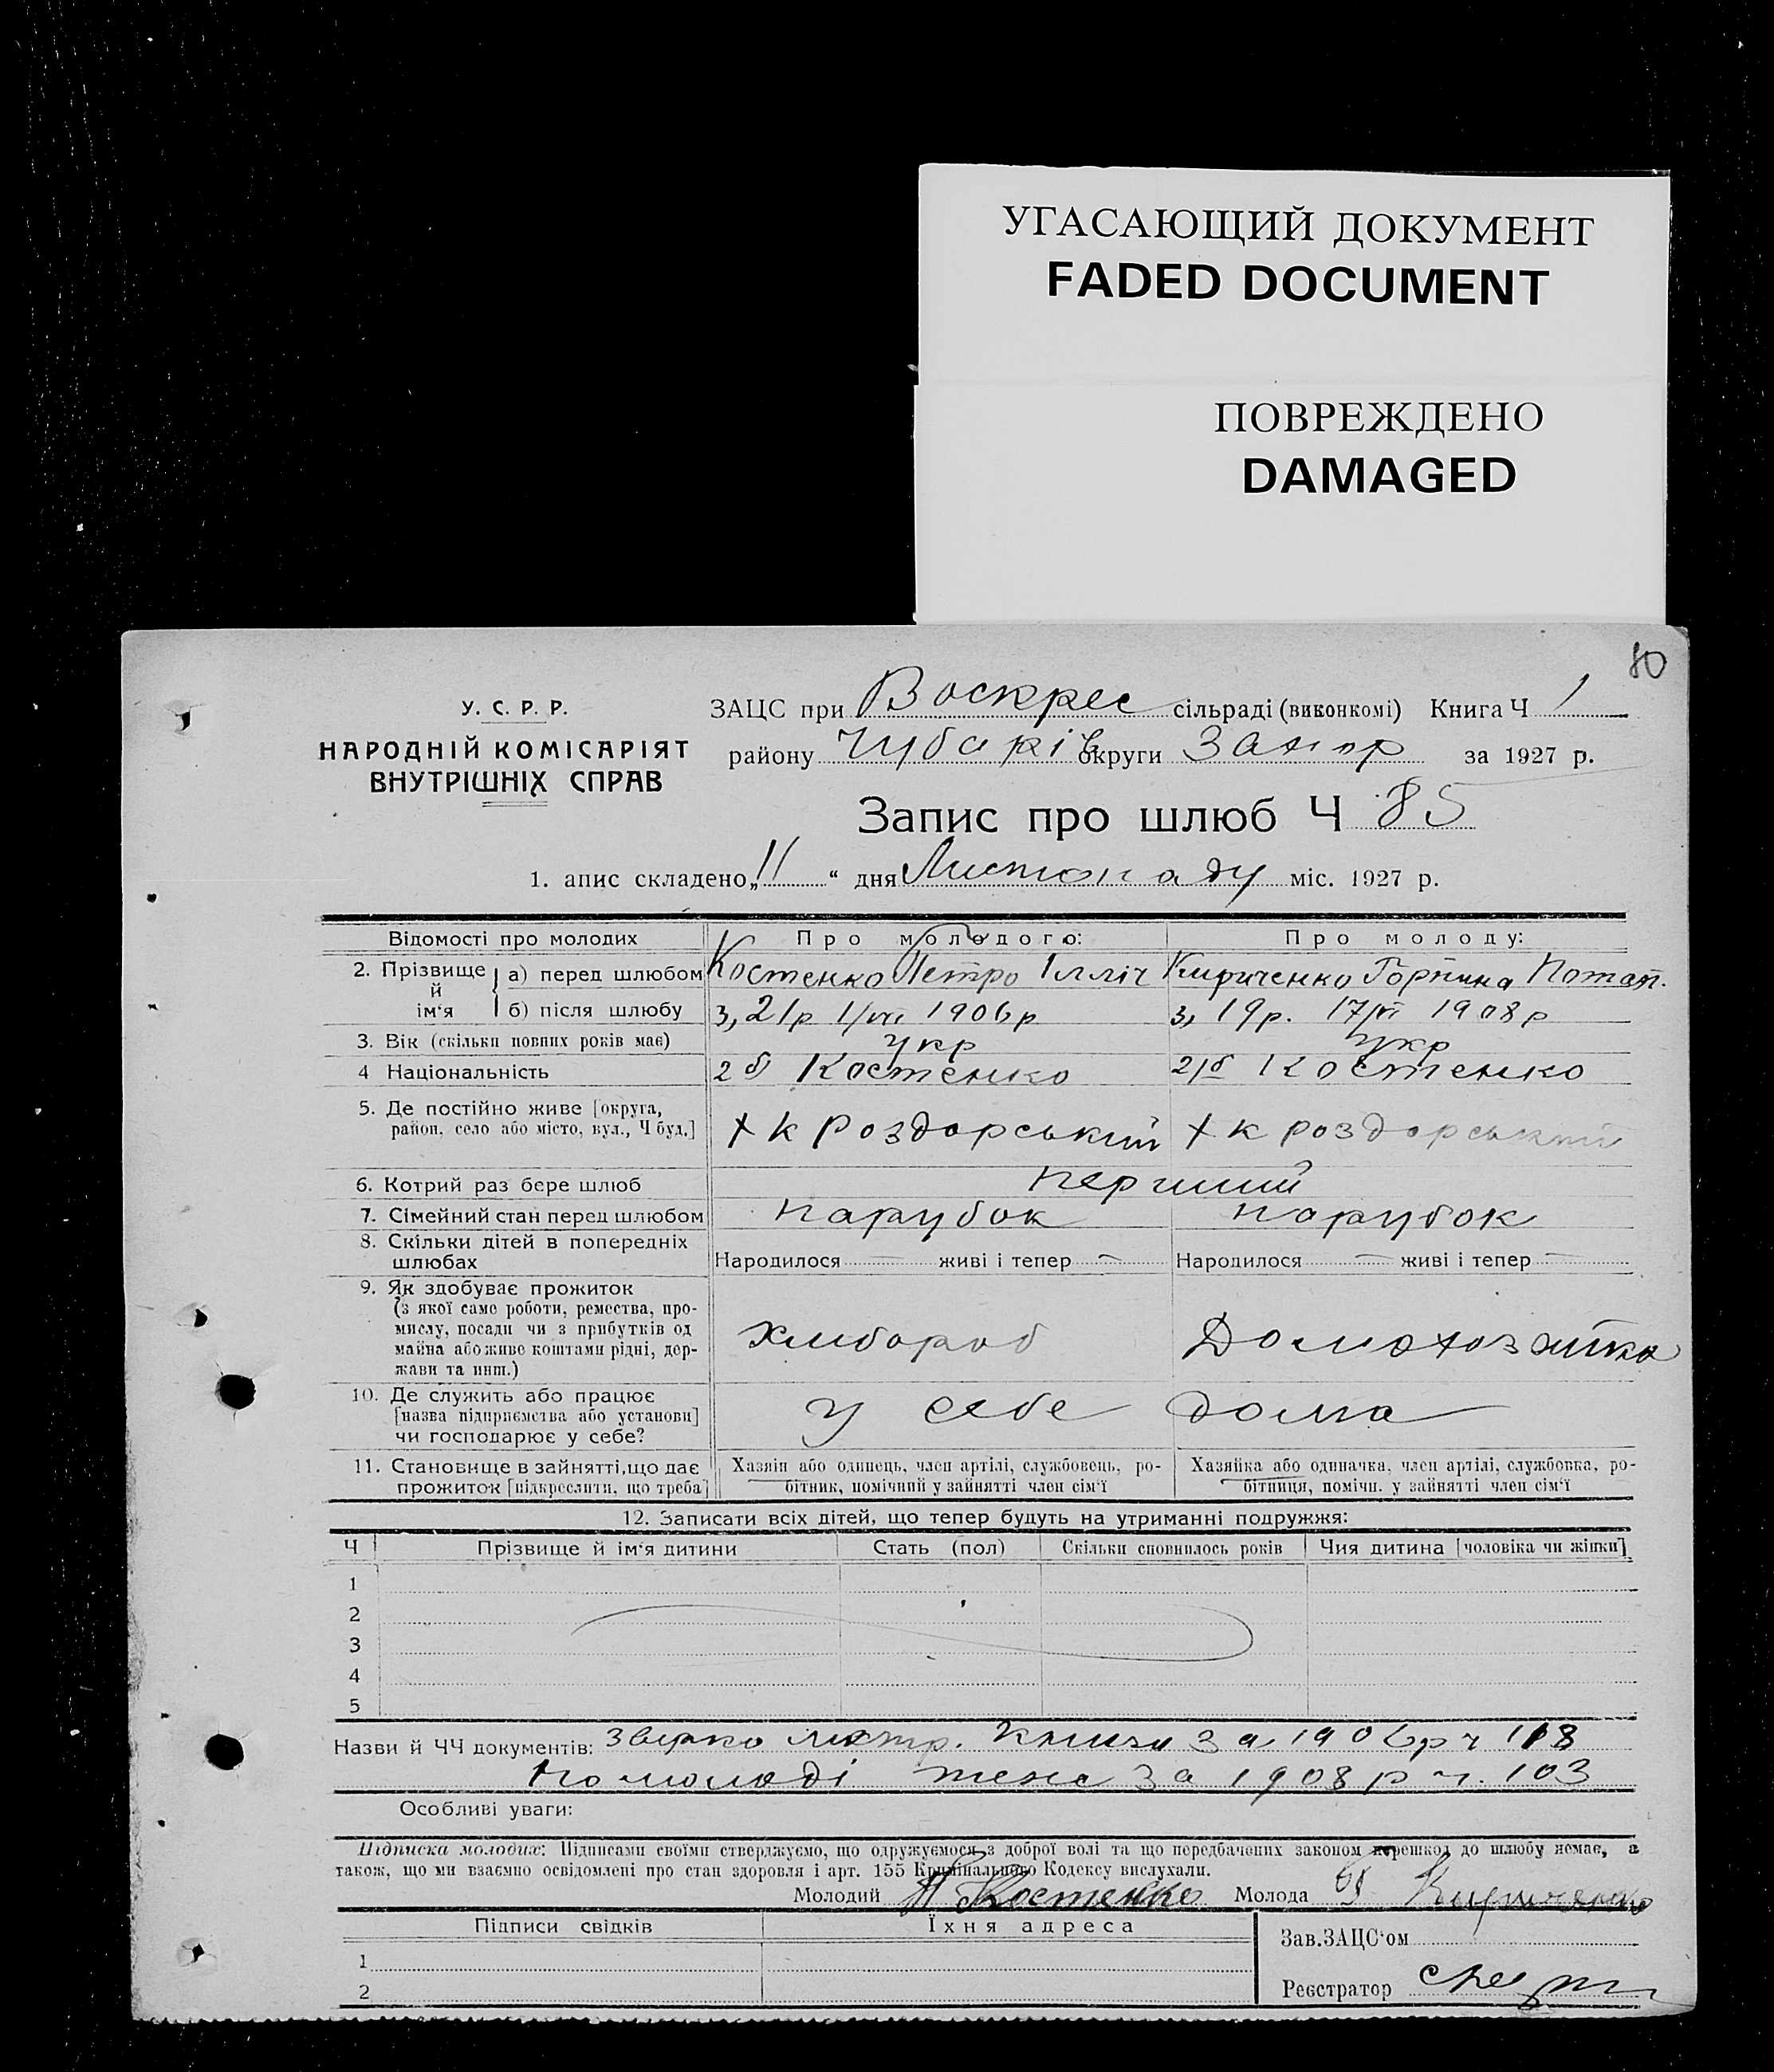 УГАСАЮЩИЙ ДОКУМЕНТ
FADED DOCUMENT
ПОВРЕЖДЕНО
DAMAGED
80
У. С. Р. Р.
НАРОДНІЙ КОМІСАРІЯТ
ВНУТРІШНІХ СПРАВ
ЗАЦС при Воскрес сільраді (виконкомі) Книга Ч 1
району Чубарів округи Запор за 1927 р.
Запис про шлюб Ч 85
1. апис складено „11“ дня Листопаду міс. 1927 р.
Відомості про молодих Про молодого: Про молоду:
2. Прізвище й ім‘я а) перед шлюбом Костенко Петро Ілліч Кириченко Горпина Потап.
б) після шлюбу 3, 21р 1/VII 1906р 3, 19р. 17/VI 1908р
3. Вік (скільки повних років має) укр укр
4 Національність 2б) Костенко 2/б Костенко
5. Де постійно живе [округа,
район, село або місто, вул., Ч буд.] х к Роздорський х к роздорський
6. Котрий раз бере шлюб перший
7. Сімейний стан перед шлюбом парубок парубок
8. Скільки дітей в попередніх
шлюбах Народилося — живі і тепер — Народилося — живі і тепер —
9. Як здобуває прожиток
(з якої саме роботи, ремества, про-
мислу, посади чи з прибутків од
майна або живе коштами рідні, дер-
жави та инш.) хлибороб Домохозяйка
10. Де служить або працює
[назва підприємства або установи]
чи господарює у себе? у себе дома
11. Становище в зайнятті, що дає
прожиток [підкреслити, що треба]
Хазяїн або одинець, член артілі, службовець, ро-
бітник, помічний у зайнятті член сім‘ї
Хазяйка або одиначка, член артілі, службовка, ро-
бітниця, помічн. у зайнятті член сім‘ї
12. Записати всіх дітей, що тепер будуть на утриманні подружжя:
Ч Прізвище й ім‘я дитини Стать (пол) Скільки сповнилось років Чия дитина [чоловіка чи жінки]
1
2
3
4
5
Назви й ЧЧ документів: звирка метр. Книги за 1906р ч 118
по молоді теж за 1908р ч. 103
Особливі уваги:
Підписка молодих: Підписами своїми стверджуємо, що одружуємося з доброї волі та що передбачених законом перешкод до шлюбу немає, а
також, що ми взаємно освідомлені про стан здоровля і арт. 155 Кримінального Кодексу вислухали.
Молодий П Костенко Молода Кириченко
Підписи свідків Їхня адреса
Зав.ЗАЦС‘ом
1
2
Реєстратор